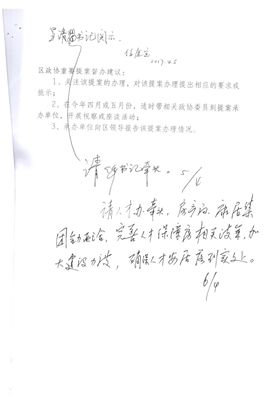 呈请 书记阅示。
2017.4.5
区政协重要提案督办建议：
1、关注该提案的办理，对该提案办理提出相应的要求或
批示；
2、在今年四月或五月份，适时带相关政协委员到提案承
办单位，开展视察或座谈活动；
3、承办单位向区领导报告该提案办理情况。
请 书记牵头。 5/4
请人才办牵头，房产局、康居集
团全力配合，完善人才保障房相关政策，加
大建设力度，确保人才安居落到实处。
6/4